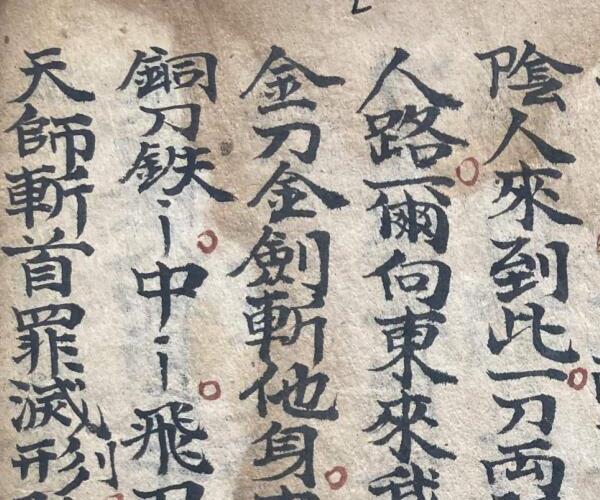 陰人來到此一刀両
人路一爾向東來我
金刀金劍斬他身
銅刀鉄〻中〻飛刀
天師斬首罪滅形